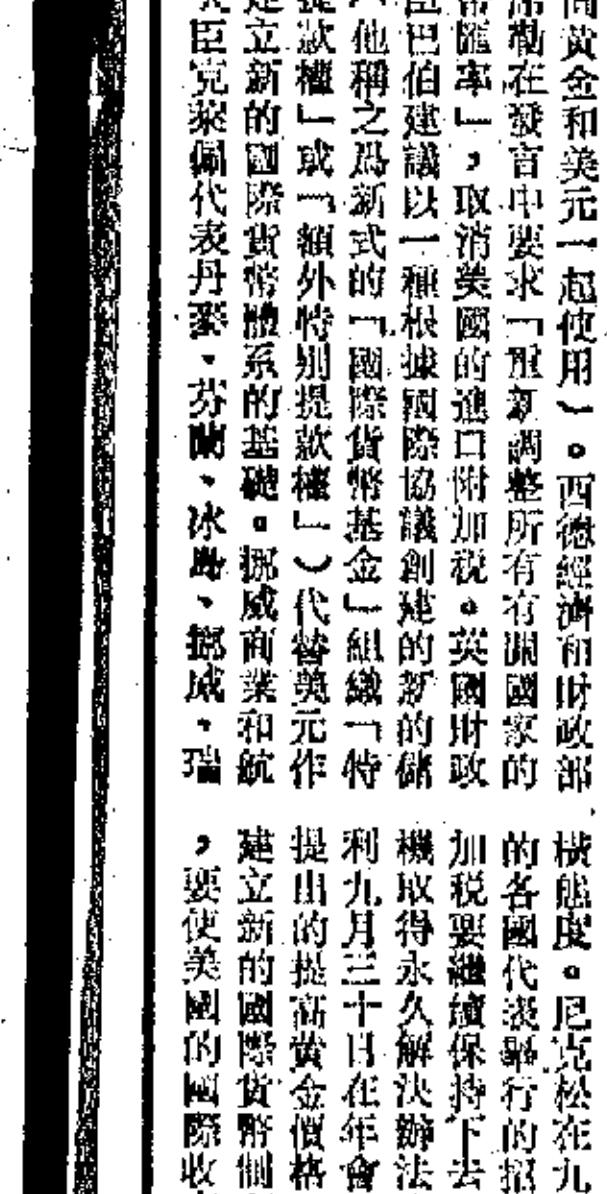 同黃金和美元一起使用）。西德經濟和財政部
席勒在發言中要求「重新調整所有有關國家的
幣匯率」，取消美國的進口附加税。英國財政
臣巴伯建議以一種根據國際協議創建的新的儲
，他稱之爲新式的「國際貨幣基金」組織「特
提款權」或「額外特别提款權」）代替美元作
建立新的國際貨幣體系的基礎。挪威商業和航
大臣克萊佩代表丹麥、芬蘭、冰島、挪威、瑞
橫態度。尼克松在九
的各國代表舉行的招
加税要繼續保持下去
機取得永久解決辦法
利九月三十日在年會
提出的提高黃金價格
建立新的國際貨幣制
，要使美國的國際收